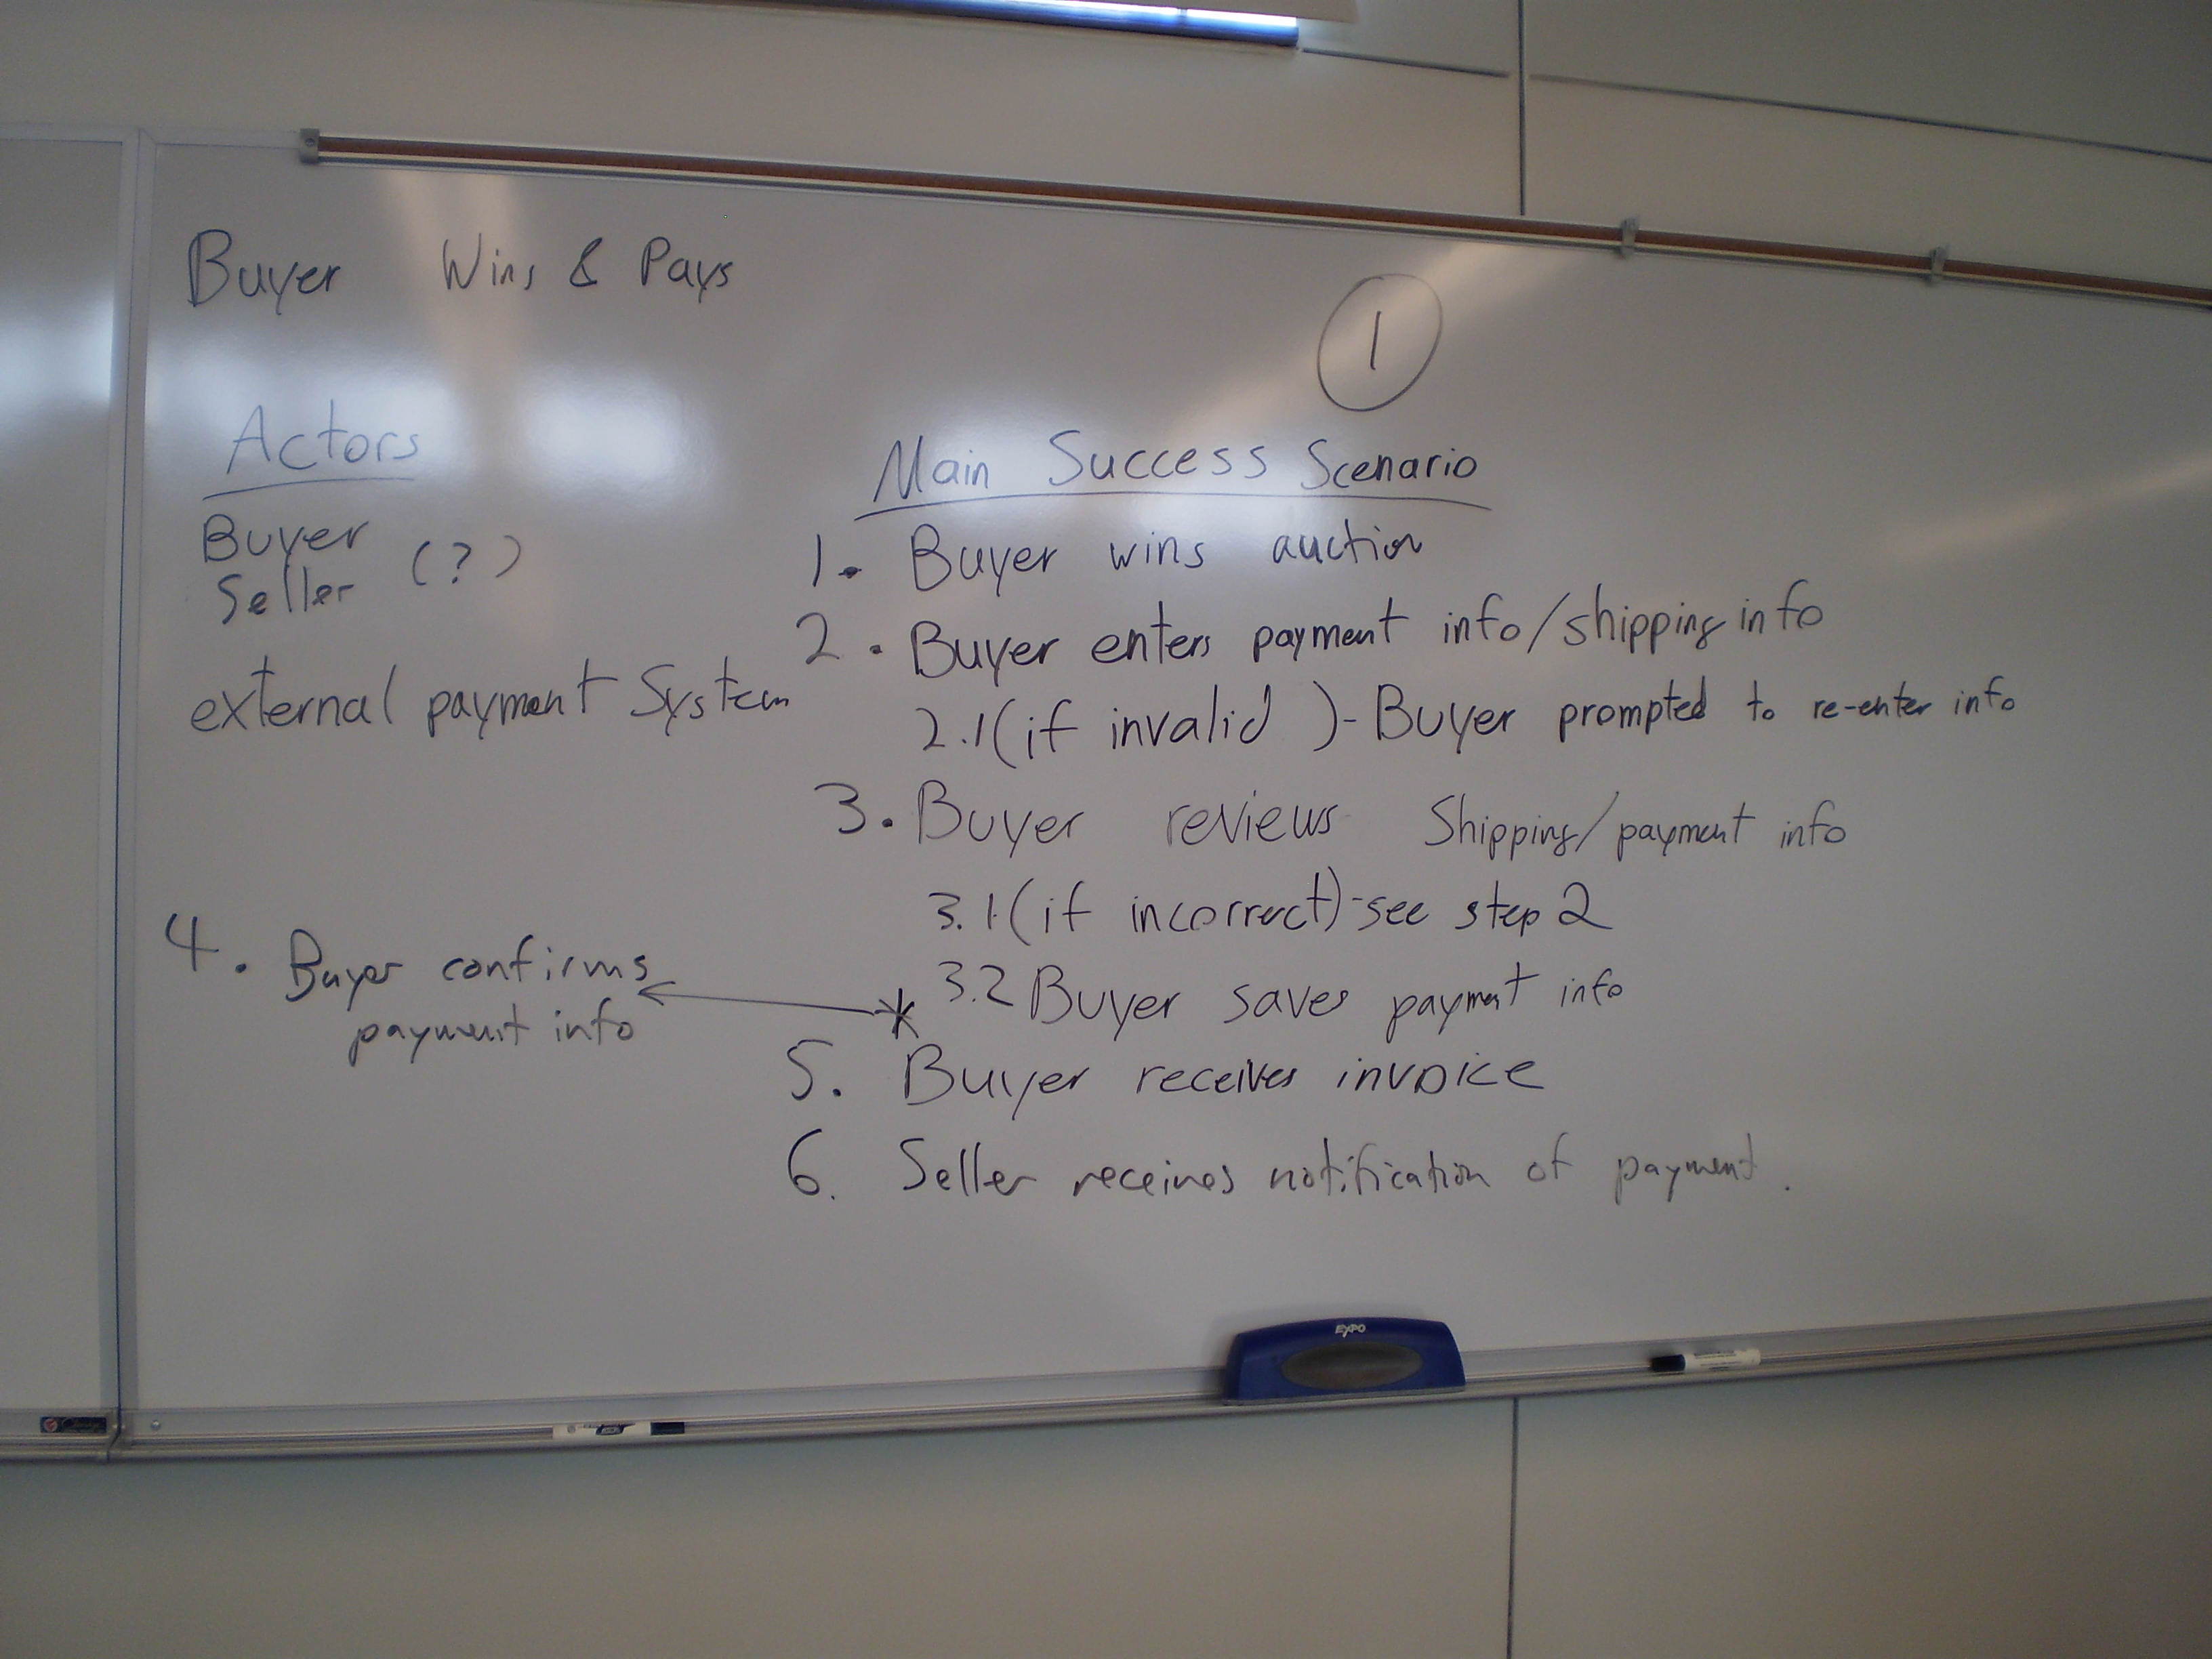 Buyer Wins & Pays
1
Actors
Buyer
Seller (?)
external payment System
Main Success Scenario
1. Buyer wins auction
2. Buyer enters payment info/shipping info
2.1(if invalid )-Buyer prompted to re-enter info
3. Buyer reviews Shipping/payment info
3.1(if incorrect)-see step 2
3.2 Buyer saves payment info
*
4. Buyer confirms
payment info
5. Buyer receives invoice
6. Seller receives notification of payment.
EXPO